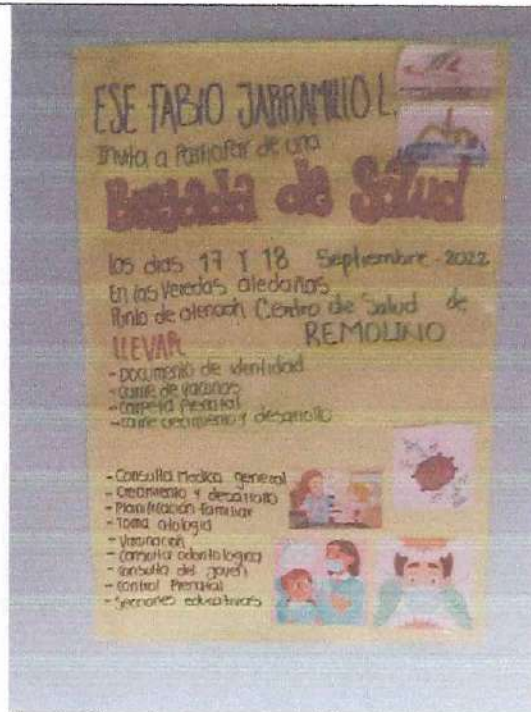 ESE FABIO JARRAMILLO L.
Invita a Participar de una
Brigada de Salud
los dias 17 Y 18 Septiembre - 2022
En las Veredas aledañas
Punto de atención Centro de Salud de
REMOLINO
LLEVAR
- Documento de identidad
- carne de vacunas
- carpeta Prenatal
- carne crecimiento y desarrollo
- Consulta Medica general
- Crecimiento y desarrollo
- Planificación familiar
- Toma citologia
- Vacunación
- Consulta odontologica
- consulta del joven
- Control Prenatal
- Secciones educativas